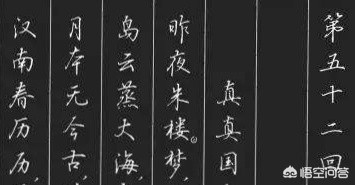 第五十二回
真真国
昨夜朱楼梦，
岛云蒸大海，
月本无今古，
汉南春历历，
悟空问答